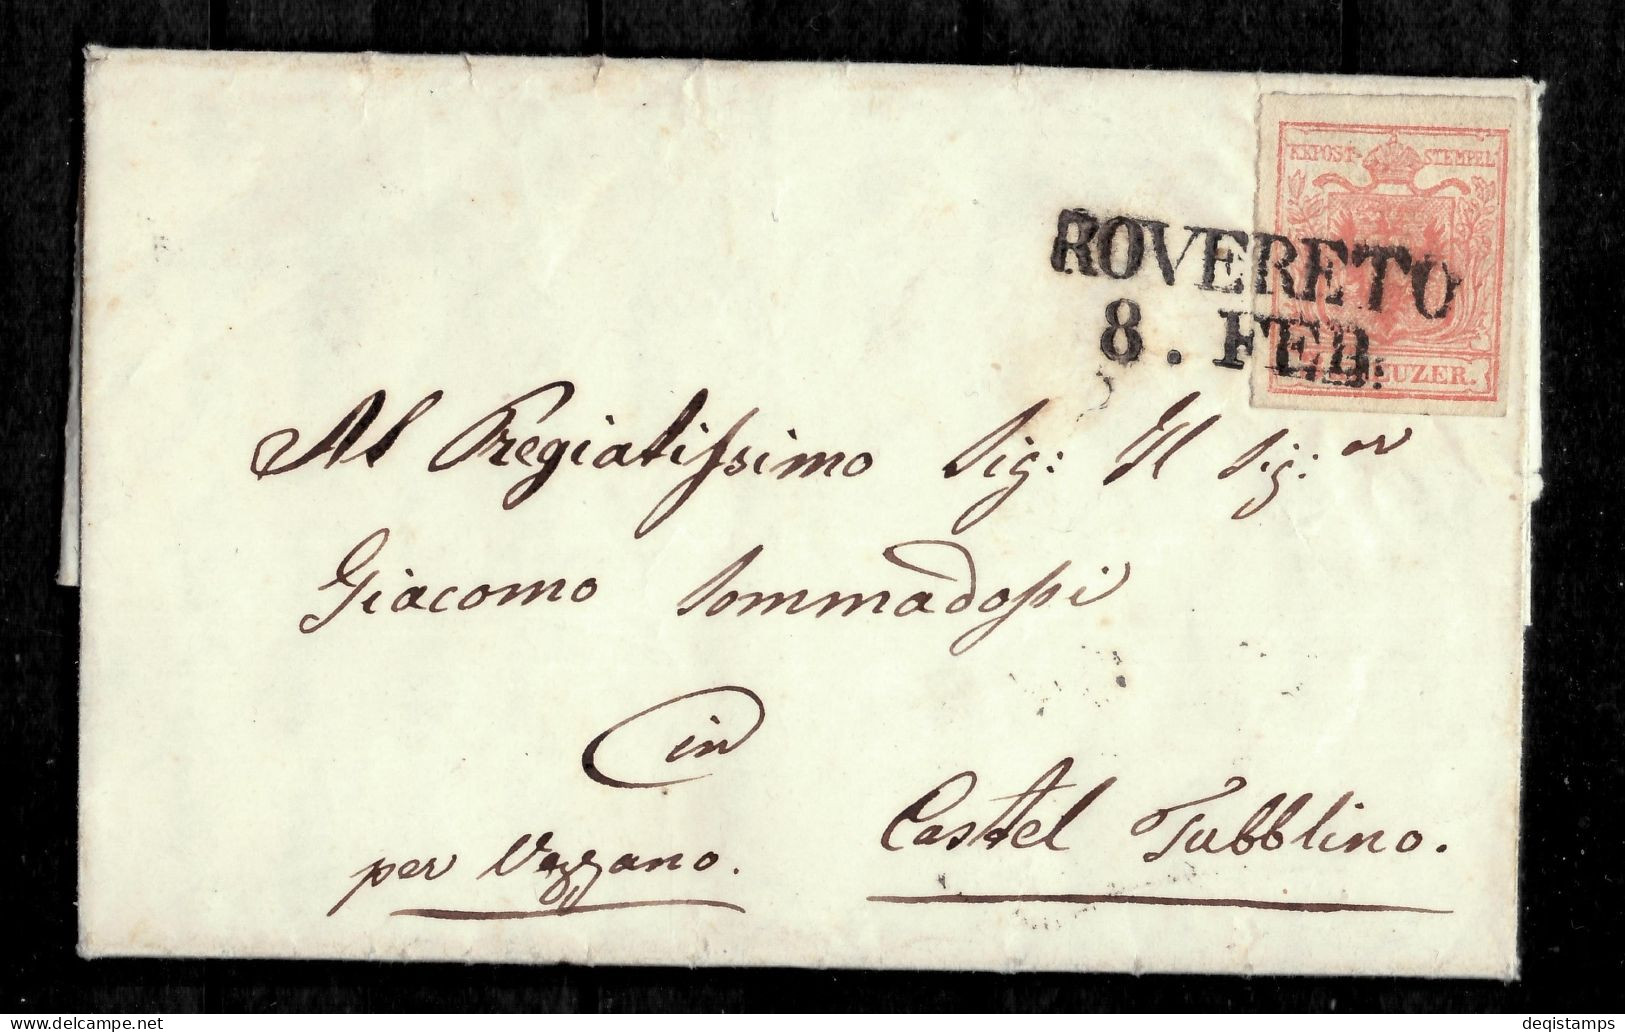 KKPOST-STEMPEL
ROVERETO
8. FEB:
KREUZER.
Al Pregiatissimo Sig: Il Sig:or
Giacomo Sommadossi
in
Castel Tobblino.
per Vezzano.
deqistamps